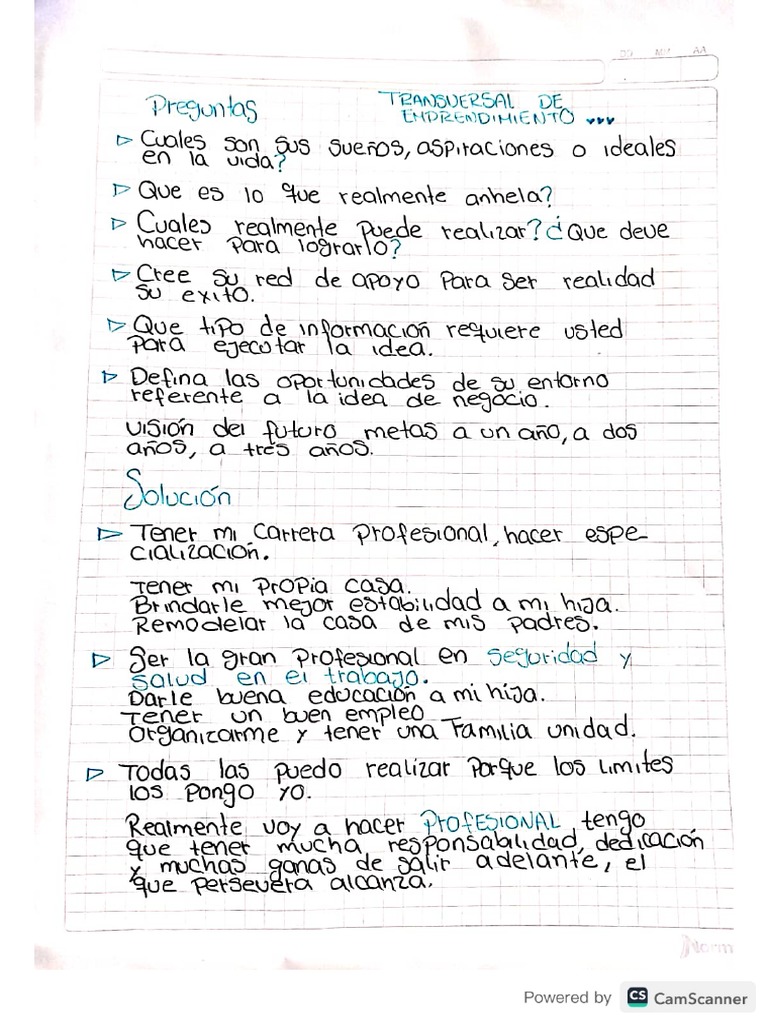 DD MM AA
Preguntas
TRANSVERSAL DE
EMPRENDIMIENTO ♥♥♥
▷ Cuales son sus sueños, aspiraciones o ideales
en la vida?
▷ Que es lo que realmente anhela?
▷ Cuales realmente puede realizar? ¿Que deve
hacer para lograrlo?
▷ Cree su red de apoyo para ser realidad
su exito.
▷ Que tipo de información requiere usted
para ejecutar la idea.
▷ Defina las oportunidades de su entorno
referente a la idea de negocio.
visión del futuro metas a un año, a dos
años, a tres años.
Solución
▷ Tener mi carrera profesional, hacer espe-
cialización.
Tener mi propia casa.
Brindarle mejor estabilidad a mi hija.
Remodelar la casa de mis padres.
▷ Ser la gran profesional en seguridad y
salud en el trabajo.
Darle buena educación a mi hija.
Tener un buen empleo
Organizarme y tener una Familia unidad.
▷ Todas las puedo realizar porque los limites
los pongo yo.
Realmente voy a hacer PROFESIONAL tengo
que tener mucha responsabilidad, dedicación
y muchas ganas de salir adelante, el
que persevera alcanza.
Norm
Powered by CS CamScanner